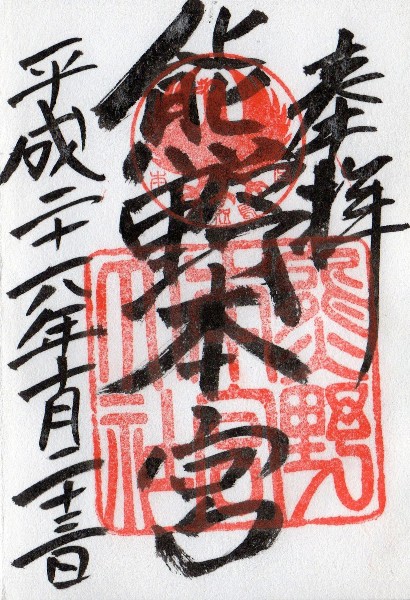 奉拝
熊野本宮
平成二十六年十月二十三日
熊野
本宮
大社